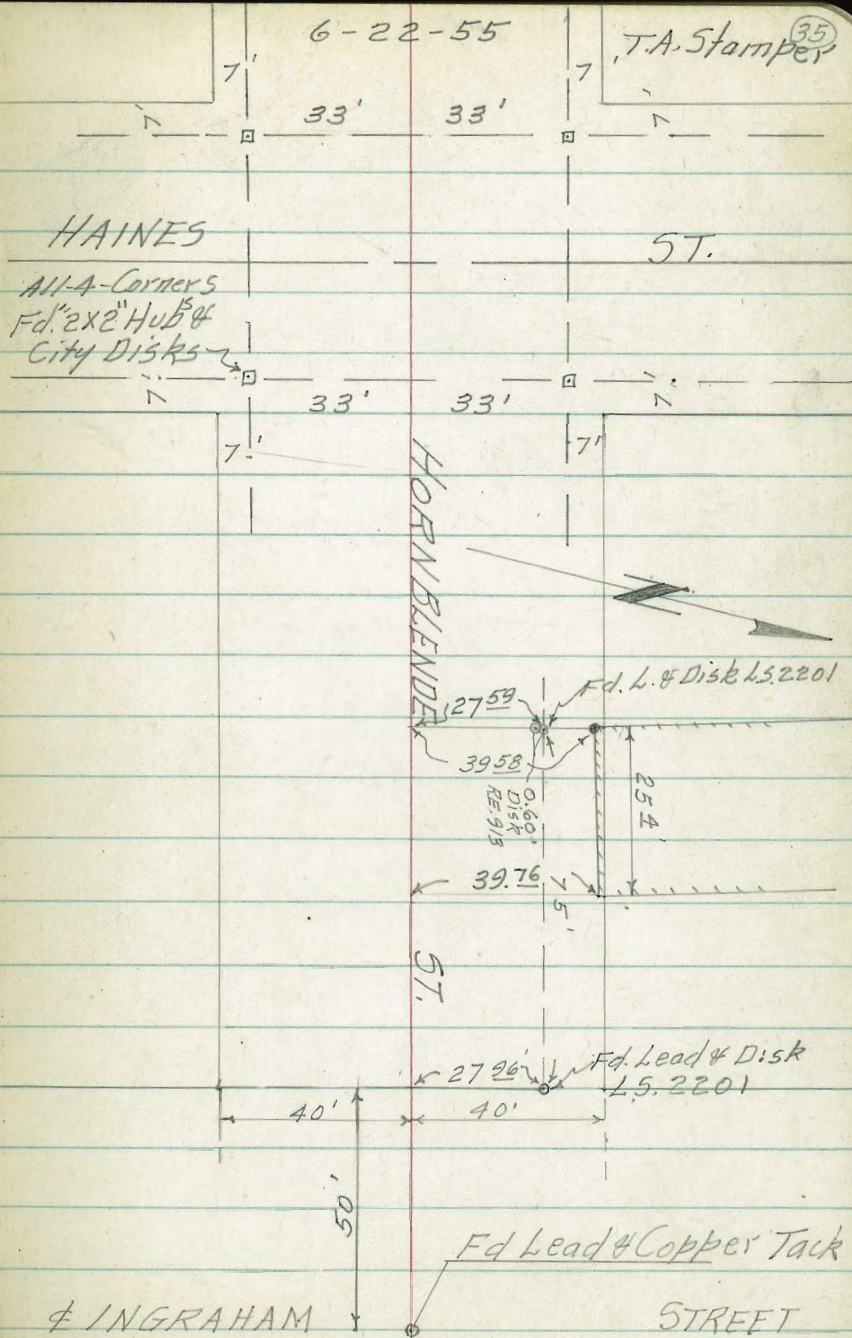 6-22-55
35
T.A. Stamper
7' 7
7' 33' 33' 7'
HAINES ST.
All-4-Corners
Fd. 2"X2" Hubs &
City Disks
7' 33' 33' 7'
7' 7'
HORNBLENDE
Fd. L. & Disk L.S. 2201
27 59
39 58
0.60'
Disk
R.E. 913
25.4'
39.76
75'
ST.
27 96
Fd. Lead & Disk
L.S. 2201
40' 40'
50'
Fd Lead & Copper Tack
₵ INGRAHAM STREET